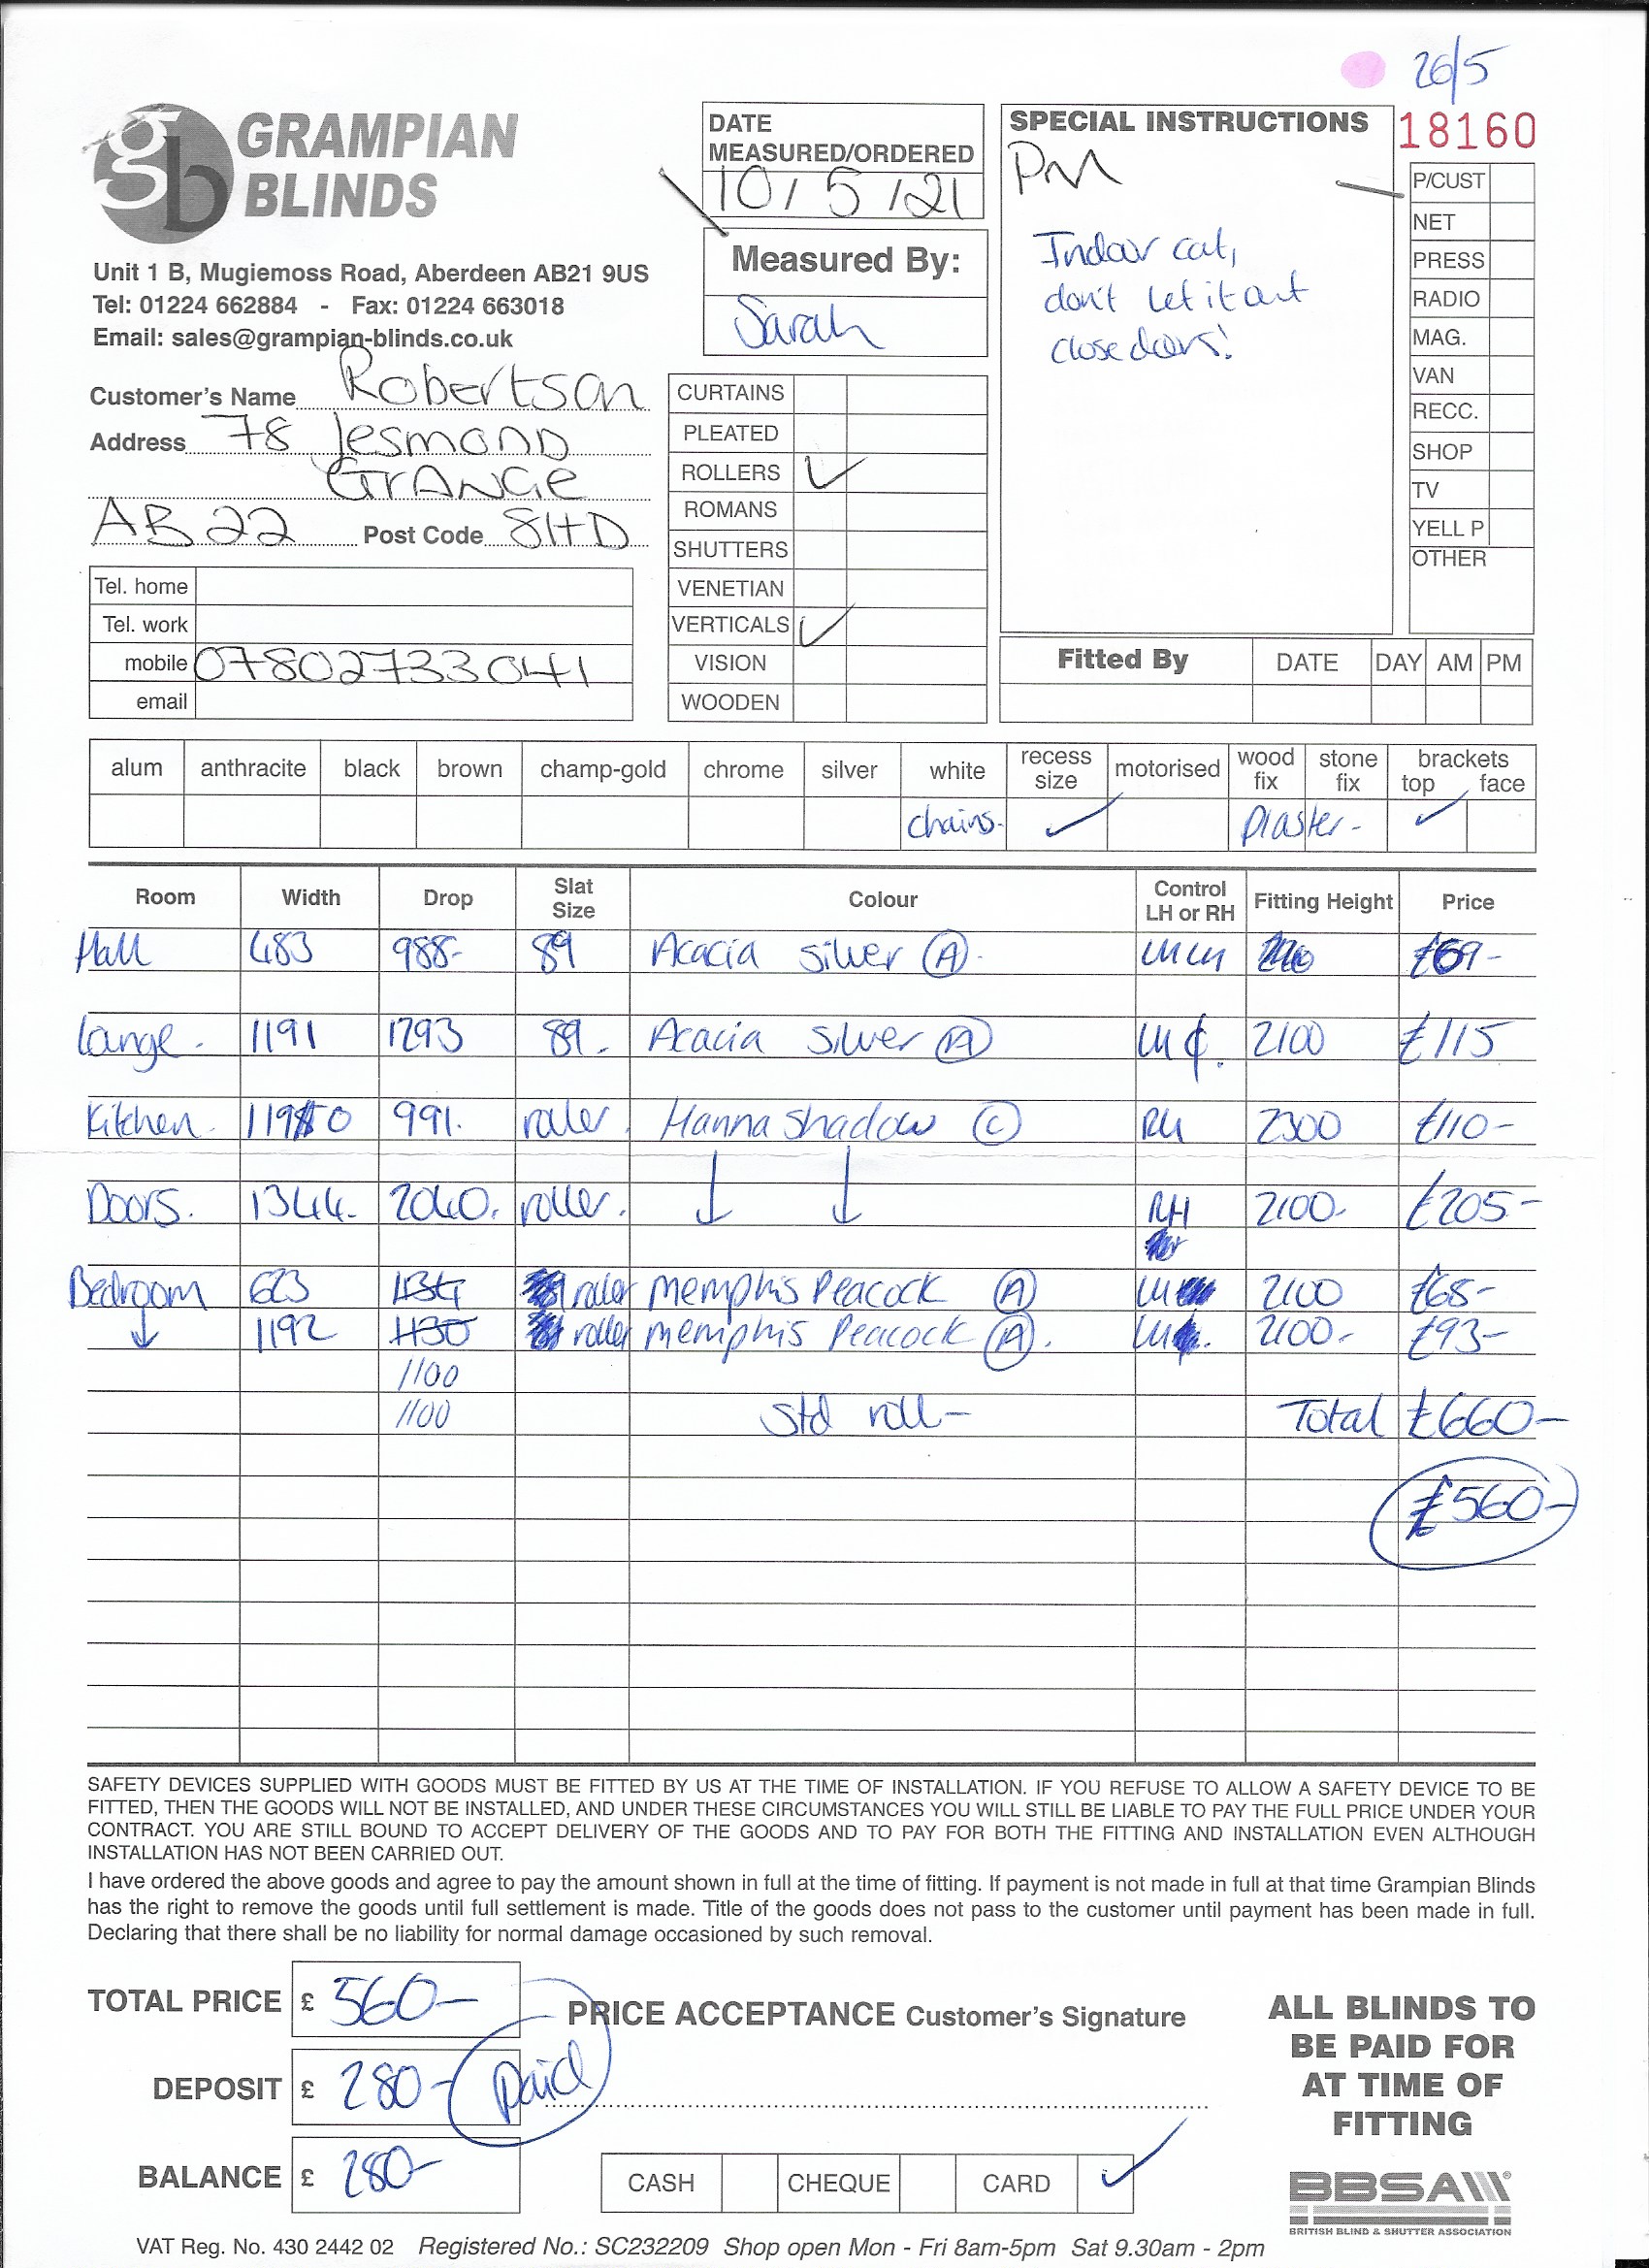 26/5
18160
gb GRAMPIAN
BLINDS
Unit 1 B, Mugiemoss Road, Aberdeen AB21 9US
Tel: 01224 662884 - Fax: 01224 663018
Email: sales@grampian-blinds.co.uk
DATE
MEASURED/ORDERED
10/5/21
Measured By:
Sarah
SPECIAL INSTRUCTIONS
PM
Indoor cat,
don't let it out
close doors!
P/CUST
NET
PRESS
RADIO
MAG.
VAN
RECC.
SHOP
TV
YELL P
OTHER
Customer's Name Robertson
Address 78 Jesmond
Grange
AB22 Post Code 8HD
Tel. home
Tel. work
mobile 07802733041
email
CURTAINS
PLEATED
ROLLERS ✓
ROMANS
SHUTTERS
VENETIAN
VERTICALS ✓
VISION
WOODEN
Fitted By DATE DAY AM PM
alum anthracite black brown champ-gold chrome silver white recess size motorised wood fix stone fix brackets top face
chains. ✓ Plaster- ✓
Room Width Drop Slat Size Colour Control LH or RH Fitting Height Price
Hall 483 988- 89 Acacia Silver (A) £69-
Lounge - 1191 1293 89. Acacia Silver (A) 2100 £115
Kitchen 991. roller Hanna Shadow (C) RH 2300 £110-
Doors. 1344. 2040. roller. ↓ ↓ RH 2100- £205-
Bedroom 623 roller Memphis Peacock (A) LH 2100 £68-
↓ 1192 1130 roller Memphis Peacock (A). LH 2100- £93-
1100
1100 Std roll- Total £660-
£560-
SAFETY DEVICES SUPPLIED WITH GOODS MUST BE FITTED BY US AT THE TIME OF INSTALLATION. IF YOU REFUSE TO ALLOW A SAFETY DEVICE TO BE
FITTED, THEN THE GOODS WILL NOT BE INSTALLED, AND UNDER THESE CIRCUMSTANCES YOU WILL STILL BE LIABLE TO PAY THE FULL PRICE UNDER YOUR
CONTRACT. YOU ARE STILL BOUND TO ACCEPT DELIVERY OF THE GOODS AND TO PAY FOR BOTH THE FITTING AND INSTALLATION EVEN ALTHOUGH
INSTALLATION HAS NOT BEEN CARRIED OUT.
I have ordered the above goods and agree to pay the amount shown in full at the time of fitting. If payment is not made in full at that time Grampian Blinds
has the right to remove the goods until full settlement is made. Title of the goods does not pass to the customer until payment has been made in full.
Declaring that there shall be no liability for normal damage occasioned by such removal.
TOTAL PRICE £ 560-
DEPOSIT £ 280- Paid
BALANCE £ 280-
PRICE ACCEPTANCE Customer's Signature
CASH CHEQUE CARD ✓
ALL BLINDS TO
BE PAID FOR
AT TIME OF
FITTING
BBSA
BRITISH BLIND & SHUTTER ASSOCIATION
VAT Reg. No. 430 2442 02 Registered No.: SC232209 Shop open Mon - Fri 8am-5pm Sat 9.30am - 2pm